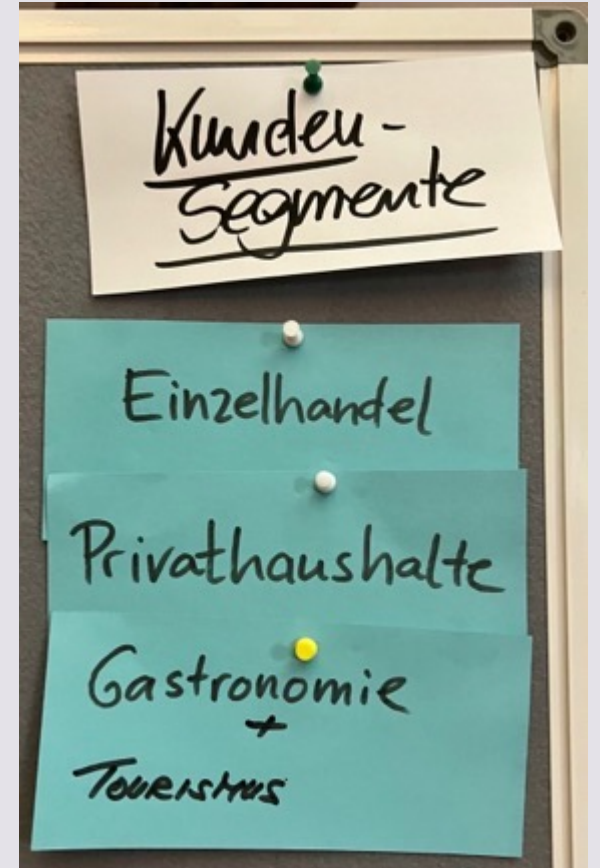 Kunden-
Segmente
Einzelhandel
Privathaushalte
Gastronomie
+
Tourismus